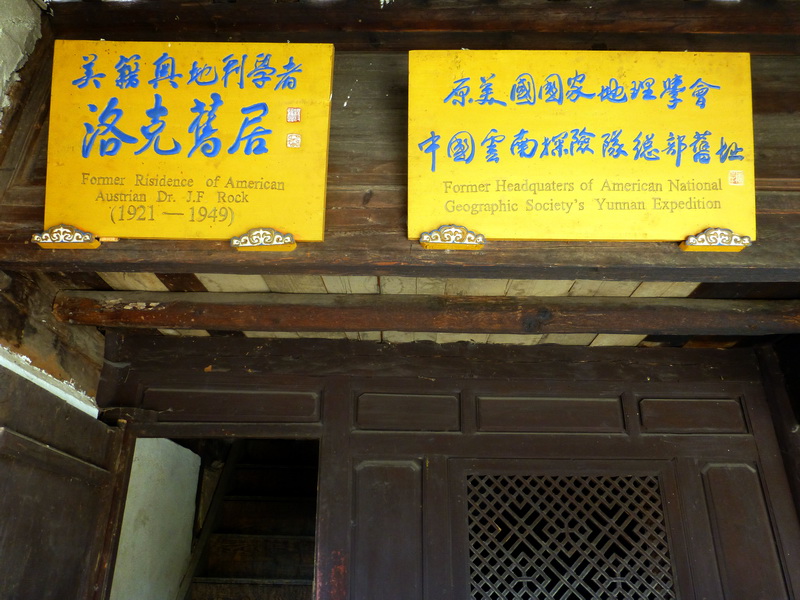 美籍奥地利學者
洛克舊居
Former Risidence of American
Austrian Dr. J.F Rock
(1921—1949)
原美國國家地理學會
中國雲南探險隊總部舊址
Former Headquaters of American National
Geographic Society's Yunnan Expedition